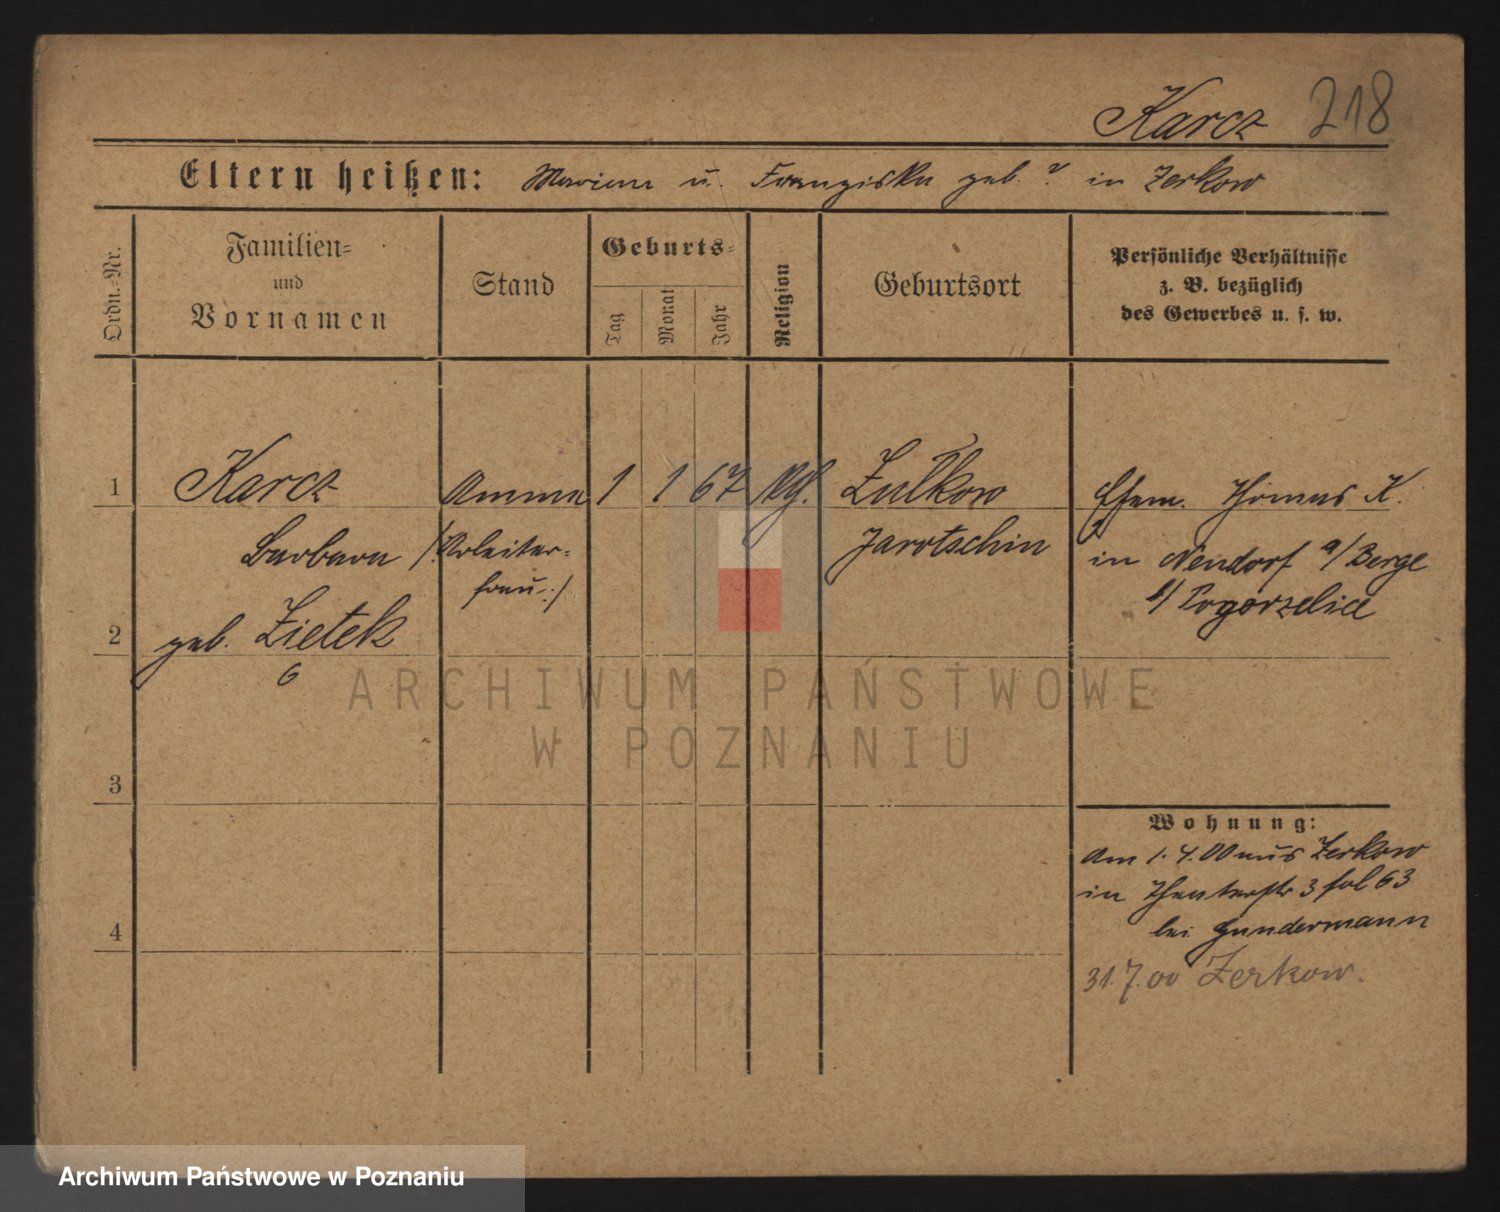 Karcz 218
Eltern heißen: Marian u. Franziska geb. ? in Zerkow
Ordn.-Nr.
Familien-
und
Vornamen
Stand
Geburts-
Tag
Monat
Jahr
Religion
Geburtsort
Persönliche Verhältnisse
z. B. bezüglich
des Gewerbes u. s. w.
1 Karcz Amme 1 1 67 Zulkow Ehem. Thomas K.
Barbara /:Arbeiter- Jarotschin in Neudorf a/Berge
frau:/ b/ Pogorzelice
2 geb. Zietek
6
3
4
Wohnung:
Am 1.4.00 aus Zerkow
in Theaterstr 3 fol 63
bei Gundermann
31.7.00 Zerkow.
ARCHIWUM PAŃSTWOWE
W POZNANIU
Archiwum Państwowe w Poznaniu